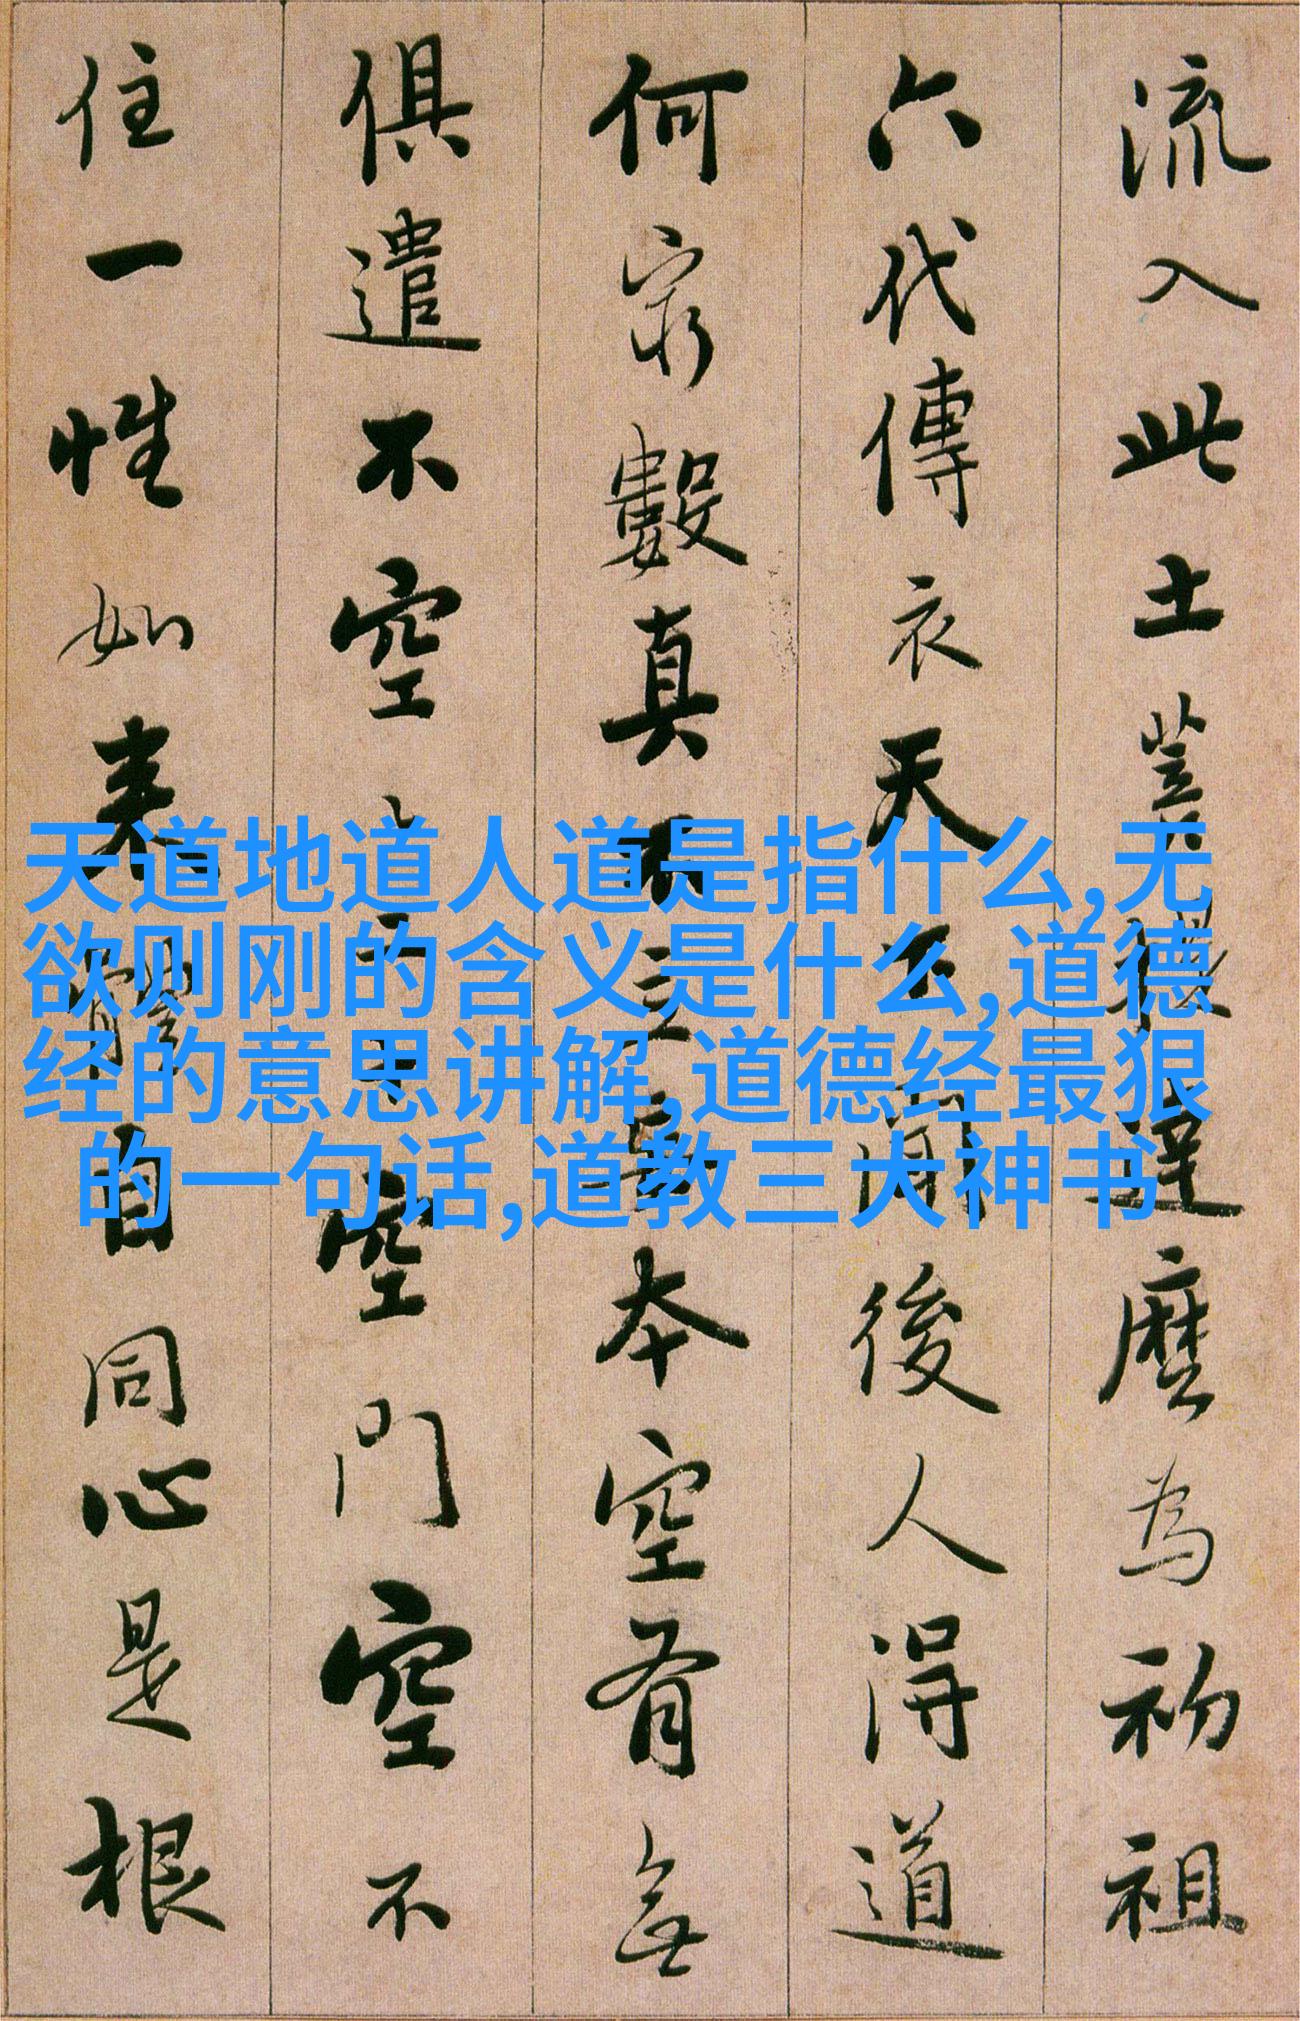 流入此土菩提達磨為初祖
六代傳衣天下聞後人得道
何窮數真不立妄本空有無
俱遣不空々二十空門空不
住一性如来體自同心是根
天道地道人道是指什么,无
欲则刚的含义是什么,道德
经的意思讲解,道德经最狠
的一句话,道教三大神书